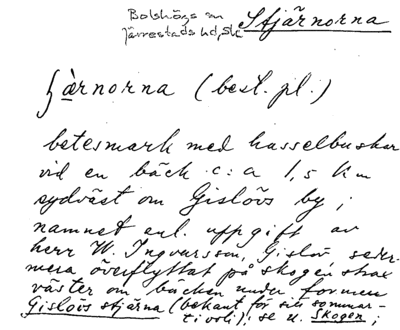 Bolshögs sn Stjärnorna
Järrestads hd, Sk
ʃàrnorna (best. pl.)
betesmark med hasselbuskar
vid en bäck c:a 1,5 km
sydväst om Gislövs by;
namnet enl. uppgift av
herr W. Ingvarsson, Gislöv, seder-
mera överflyttat på skogen strax
väster om bäcken under formen
Gislövs stjärna (bekant för sitt sommar-
tivoli); se u. Skogen;